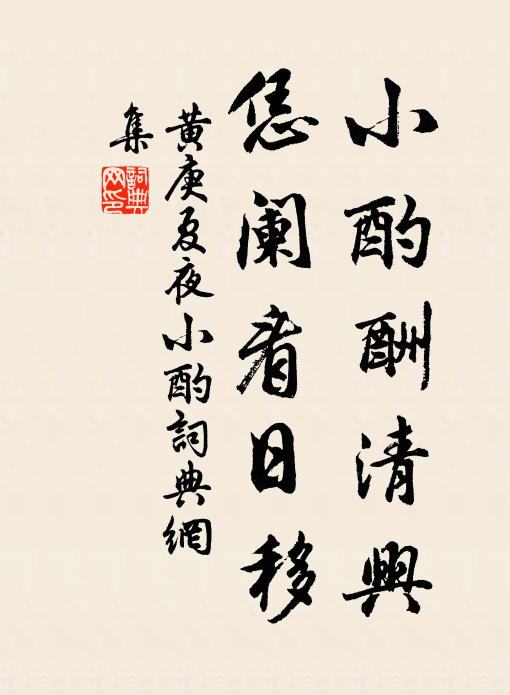 小酌酬清興
恁阑看日移
黄庚夏夜小酌詞典網
集
詞典
网印